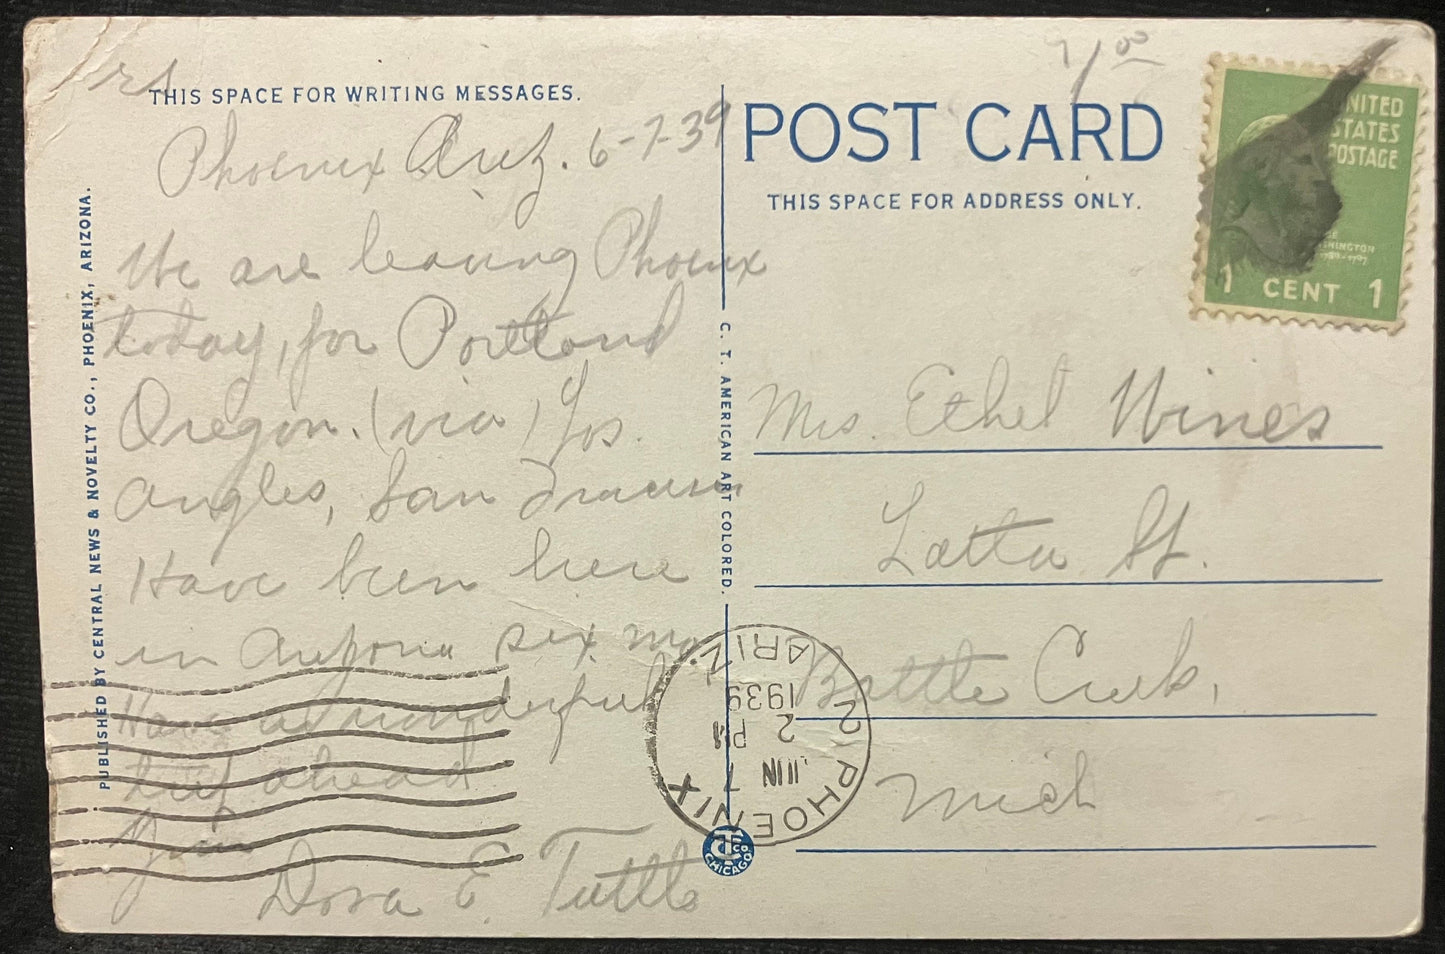 THIS SPACE FOR WRITING MESSAGES.
Phoenix Ariz. 6-7-39
We are leaving Phoenix
today, for Portland
Oregon. (via) Los.
Angles, San
Have been here
in Arizona six mo.
Have a wonderful
trip ahead
Dora E. Tuttle
PUBLISHED BY CENTRAL NEWS & NOVELTY CO., PHOENIX, ARIZONA.
C. T. AMERICAN ART COLORED.
POST CARD
THIS SPACE FOR ADDRESS ONLY.
1.00
UNITED
STATES
POSTAGE
WASHINGTON
1789-1797
1 CENT 1
Mrs. Ethel Wines
Latta St.
Battle Creek,
Mich
PHOENIX 2
ARIZ.
JUN 7
2 PM
1939
CHICAGO